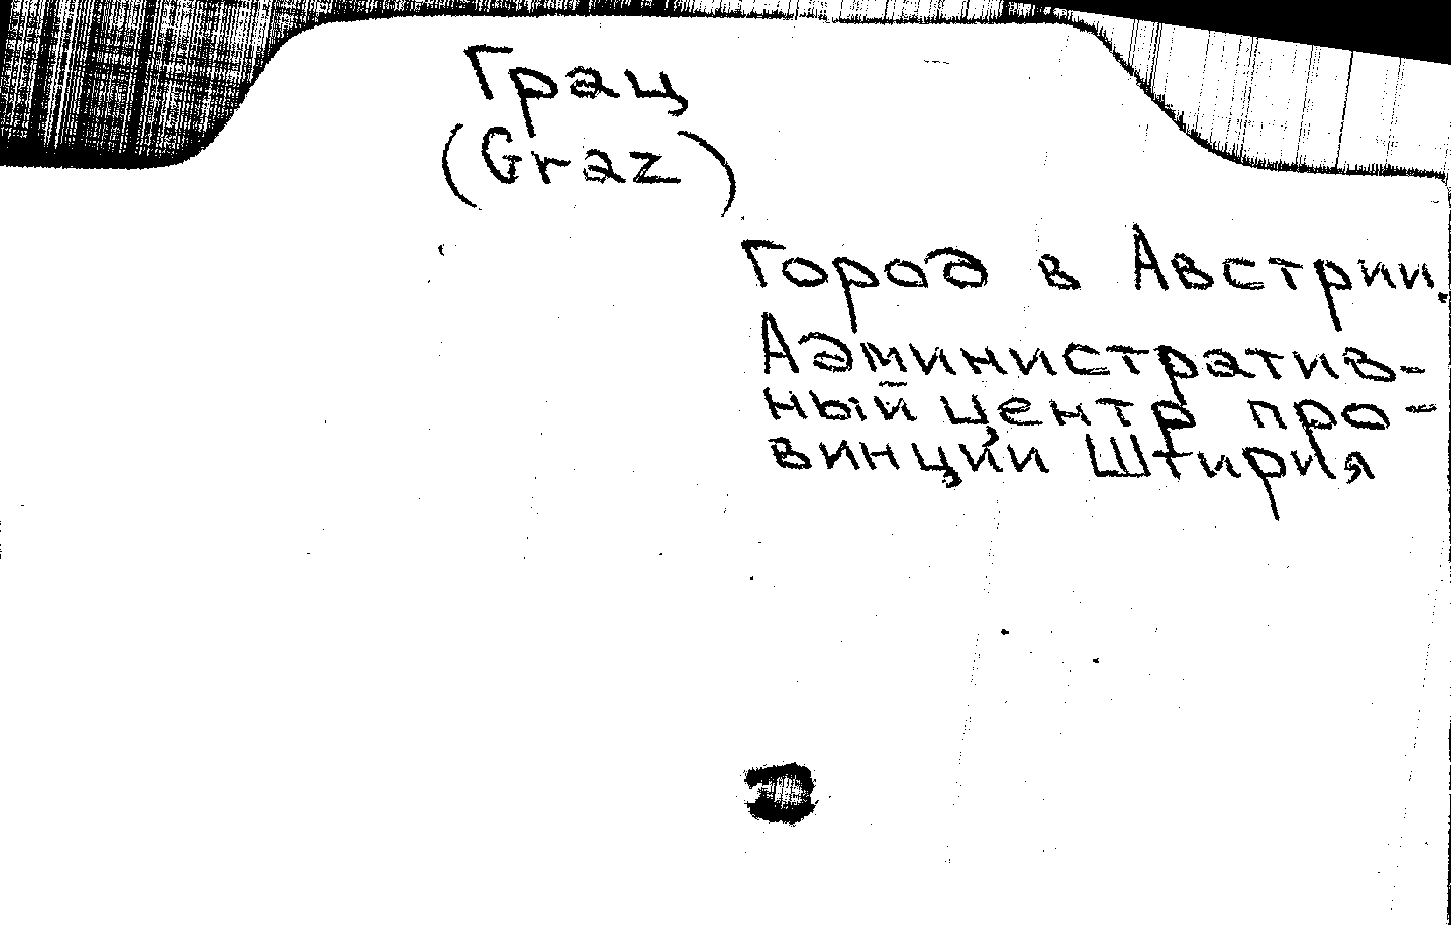 Грац
(Graz)
Город в Австрии.
Административ-
ный центр про-
винции Штирия